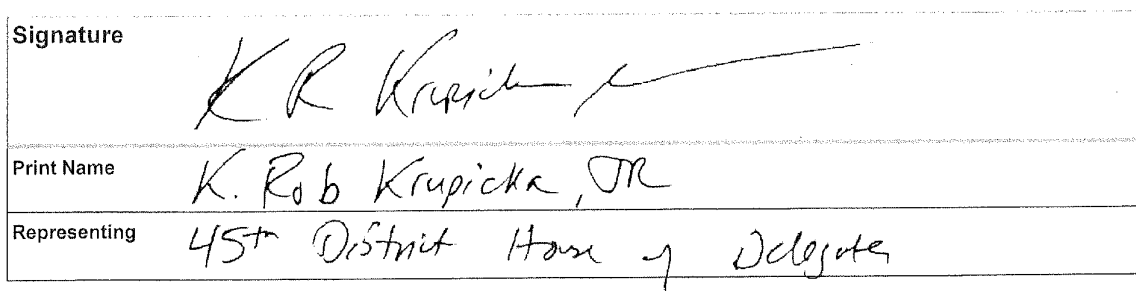 Signature K R Krupicka
Print Name K. Rob Krupicka, JR
Representing 45th District House of Delegates